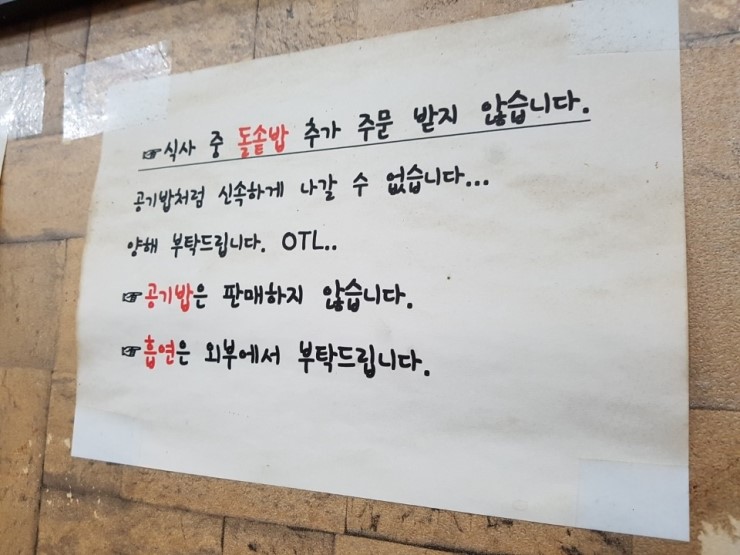 ☞식사 중 돌솥밥 추가 주문 받지 않습니다.
공기밥처럼 신속하게 나갈 수 없습니다...
양해 부탁드립니다. OTL..
☞공기밥은 판매하지 않습니다.
☞흡연은 외부에서 부탁드립니다.